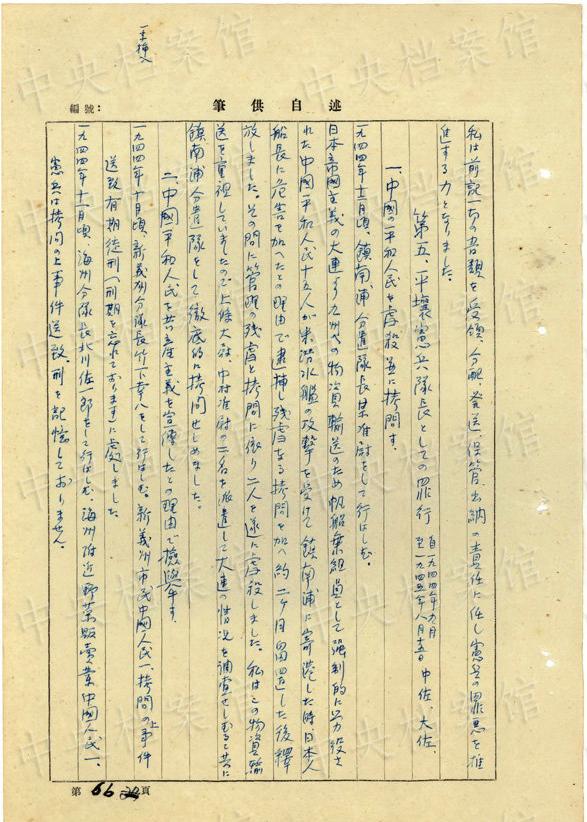 一字挿入
筆供自述
編號：
私は前記一切の書類を受領、分配、発送、保管、出納の責任に任し憲兵の罪悪を推
進する力となりました。
第五、平壌憲兵隊長としての罪行 自一九四四年九月 至一九四五年八月十五日 中佐、大佐、
一、中国の平和人民を虐殺並に拷問す。
一九四四年十一月頃、鎮南浦分遣隊長某准尉をして行はしむ。
日本帝國主義の大連より九州への物資輸送のため帆船乗組員として強制的に労役さ
れた中國平和人民十五人が米潜水艦の攻撃を受けて鎮南浦に寄港した時日本人
船長に危害を加へたとの理由で逮捕し残虐なる拷問を加へ約二ヶ月留置した後釋
放しました。その間に管理の残虐と拷問に依り二人を遂に虐殺しました。私はこの物資輸
送を重視していましたので上條大尉、中村准尉の二名を派遣して大連の情況を調査せしむると共に
鎮南浦分遣隊をして徹底的に拷問せしめました。
二、中國平和人民を共産主義を宣傳したとの理由で検擧す。
一九四四年十月頃、新義州分隊長竹下幸八をして行はしむ。新義州市民中國人民一、拷問の上事件
送致有期徒刑（刑期を忘れております）に處しました。
一九四四年十一月頃、海州分隊長北川佐一郎をして行はしむ、海州附近野菜販賣業中國人民一、
憲兵は拷問の上事件送致、刑を記憶しておりません。
第66頁
中央档案馆